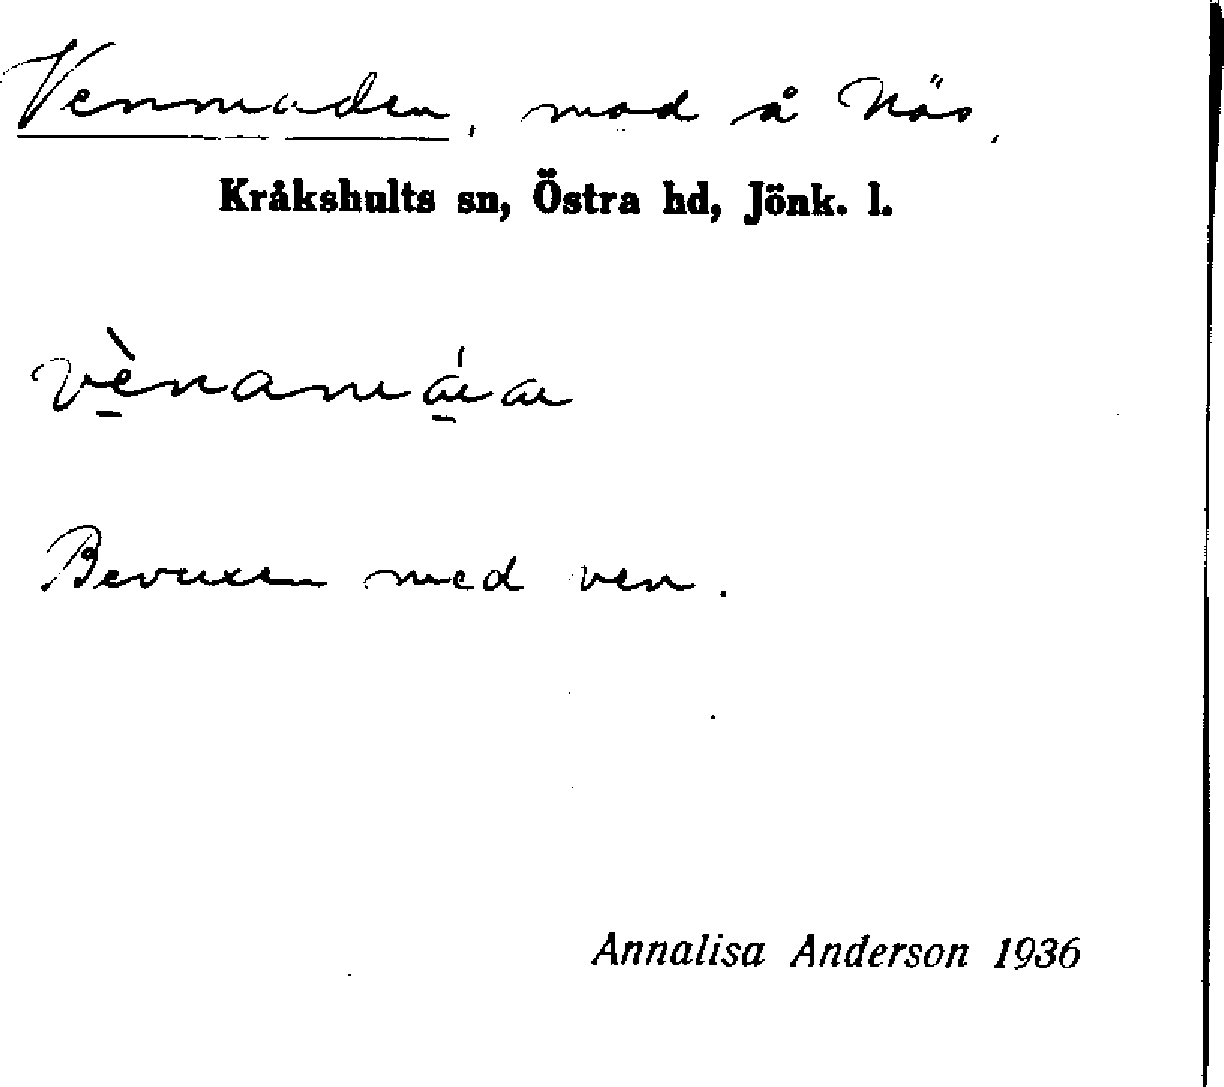 Venmaden, mad å Näs,
Kråkshults sn, Östra hd, Jönk. l.
Bevuxen med ven.
Annalisa Anderson 1936